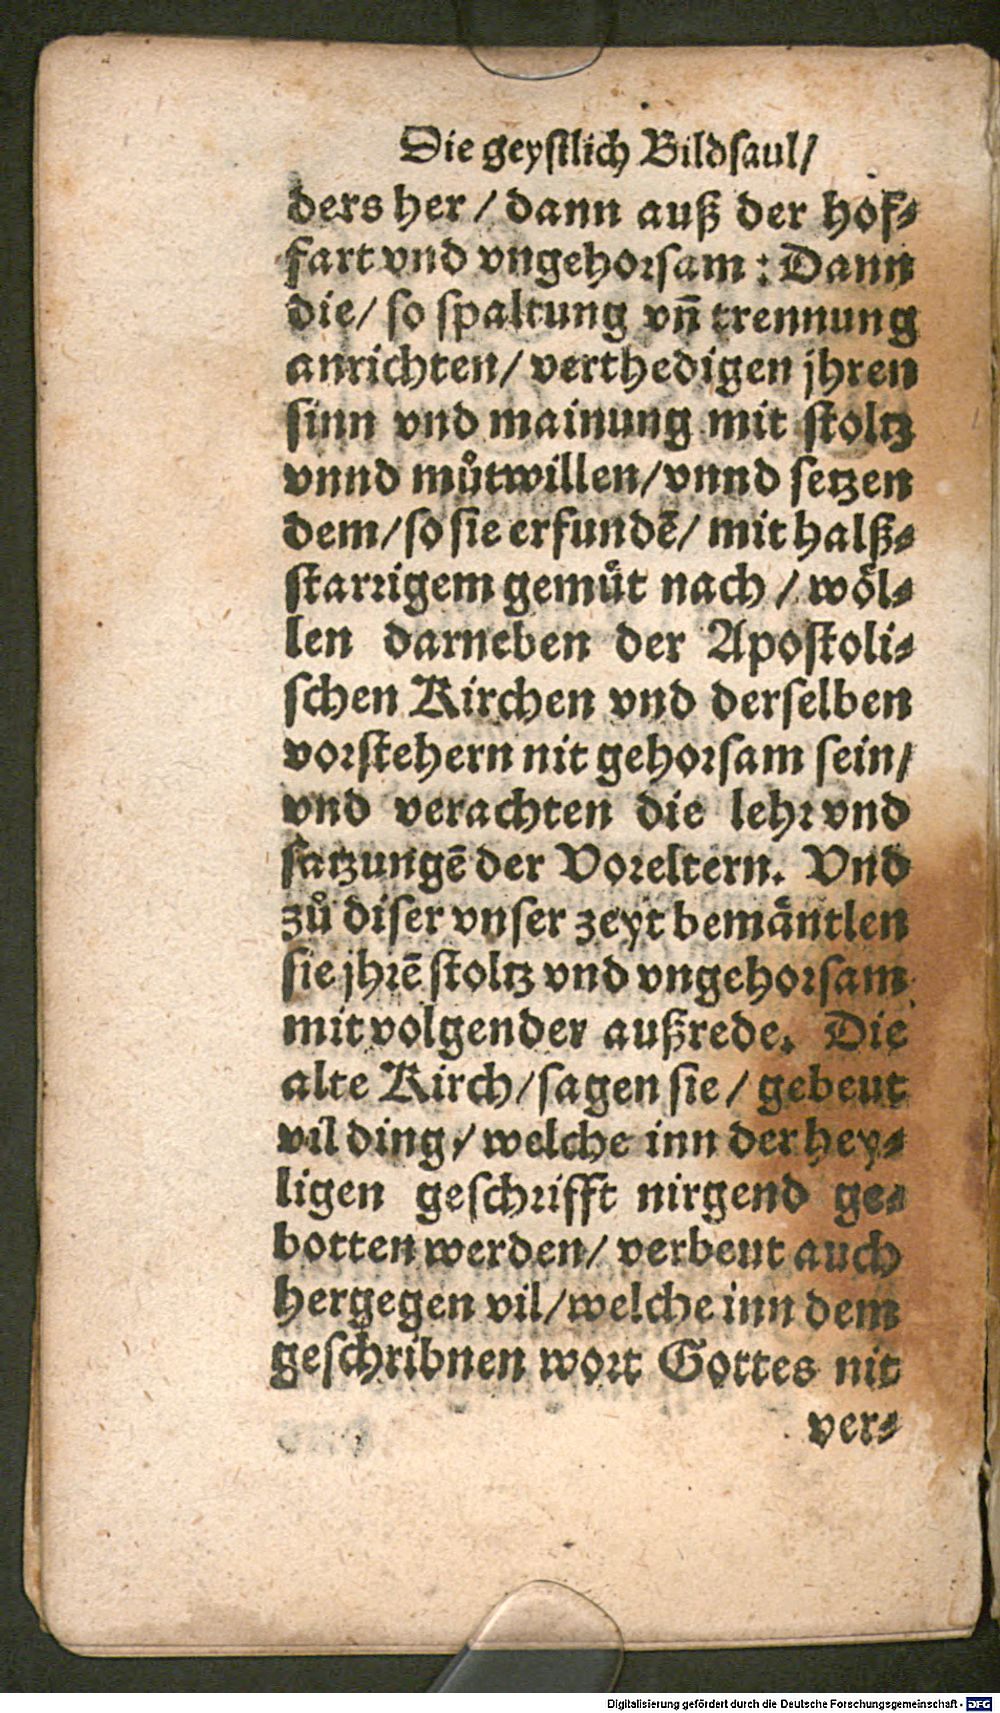 Die geyſtlich Bildſaul/
ders her / dann auß der hof⸗
fart vnd vngehorſam : Dann
die/ ſo ſpaltung vñ trennung
anrichten/ verthedigen jhren
ſinn vnd mainung mit ſtoltz
vnnd můtwillen/vnnd ſetzen
dem/ſo ſie erfundẽ/ mit halß⸗
ſtarrigem gemuͤt nach / woͤl⸗
len darneben der Apoſtoli⸗
ſchen Kirchen vnd derſelben
vorſtehern nit gehorſam ſein/
vnd verachten die lehr vnd
ſatzungẽ der Voreltern. Vnd
zů diſer vnſer zeyt bemaͤntlen
ſie jhrẽ ſtoltz vnd vngehorſam
mit volgender außrede. Die
alte Kirch/ſagen ſie/ gebeut
vil ding/ welche inn der hey⸗
ligen geſchrifft nirgend ge⸗
botten werden/ verbeut auch
hergegen vil/welche inn dem
geſchribnen wort Gottes nit
ver⸗
Digitalisierung gefördert durch die Deutsche Forschungsgemeinschaft - DFG